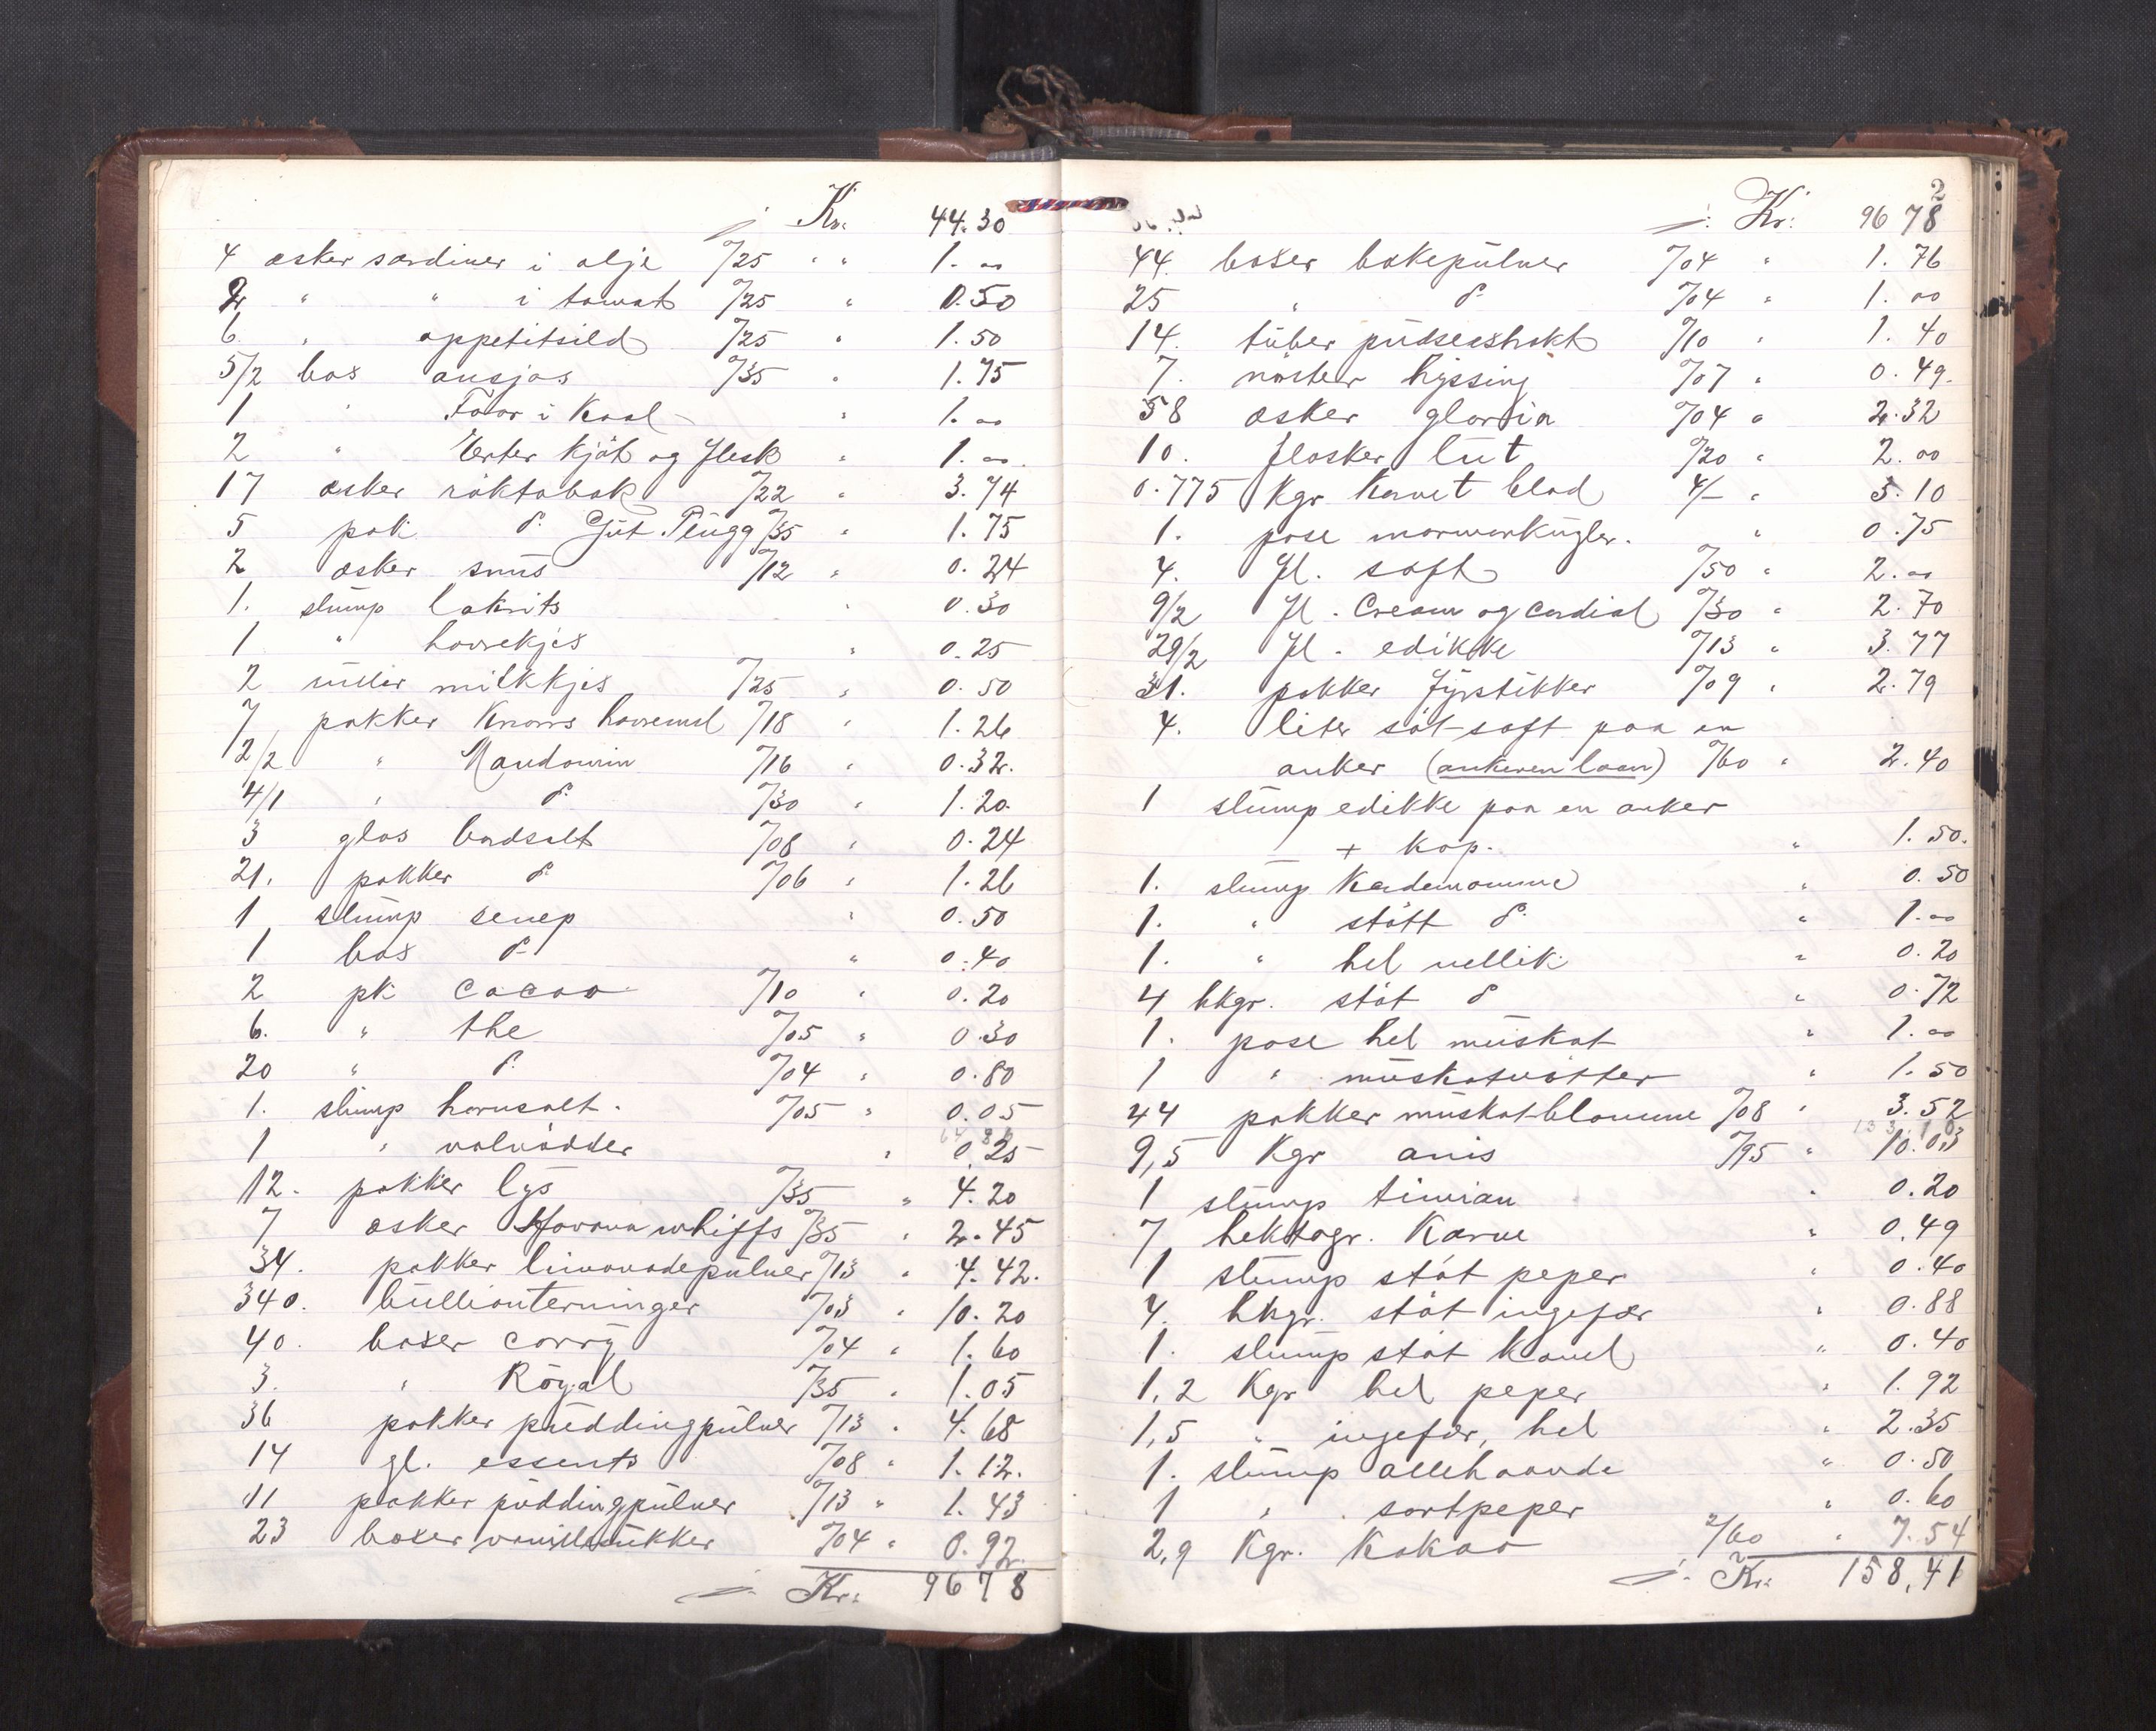 Kr. 44.30
4 æsker sardiner i olje %25 " " 1.00
2 " " i tomat %25 " 0.50
6 " appetitsild %25 " 1.50
5/2 box ansjos %35 " 1.75
1 " Faar i Kaal " 1.00
2 " Erter kjöt og flesk " 1.00
17 æsker röktobak %22 " 3.74
5 pak do Gut. Plugg %35 " 1.75
2 æsker snus %12 " 0.24
1. slump lakrits " 0.30
1 " havrekjes " 0.25
2 ruller milkkjes %25 " 0.50
7 pakker Knorrs havremel %18 " 1.26
2/2 " Mandomin %16 " 0.32.
4/1 " do %30 " 1.20
3 glas bordsalt %08 " 0.24
21. pakker do %06 " 1.26
1 slump senep " 0.50
1 box do " 0.40
2 pk cacao %10 " 0.20
6. " the %05 " 0.30
20 " do %04 " 0.80
1. slump hornsalt. %05 " 0.05
1 " valnödder " 0.25
12. pakker lys %35 " 4.20
7 æsker Havana whiffs %35 " 2.45
34. pakker limonadepulver %13 " 4.42.
340. bullionterninger %03 " 10.20
40. boxer corry %04 " 1.60
3. " Röyal %35 " 1.05
36 pakker puddingpulver %13 " 4.68
14 gl. essents %08 " 1.12.
11 pakker puddingpulver %13 " 1.43
23 boxer vanillesukker %04 " 0.92
Kr. 96 78
2
Kr. 96 78
44. boxer bakepulver %04 " 1.76
25 " do %04 " 1.00
14. tuber pudseekstrakt %10 " 1.40
7. nöster hyssing %07 " 0.49.
58 æsker gloria %04 " 2.32
10. flasker lut %20 " 2.00
0.775 Kgr. Karvet blad 4/- " 3.10
1. pose marmorkugler. " 0.75
4. fl. saft %50 " 2.00
9/2 fl. Cream og Cordial %30 " 2.70
29/2 fl. edikke %13 " 3.77
31. pakker fyrstikker %09 " 2.79
4. liter söt-saft paa en
anker (ankeren laan) %60 " 2.40
1 slump edikke paa en anker
+ kop. " 1.50.
1. slump Kardemomme " 0.50
1. " stött do " 1.00
1. " hel nellik " 0.20
4 hkgr. stöt do " 0.72
1. pose hel muskat " 1.00
1 " muskatnötter " 1.50
44 pakker muskat-blomme %08 " 3.52
9,5 Kgr anis %95 " 10.03
1 slump timian " 0.20
7 hektogr. Karve " 0.49
1 slump stöt peper " 0.40
4. hkgr. stöt ingefær " 0.88
1. slump stöt kanel " 0.40
1,2 Kgr hel peper " 1.92
1,5 " ingefær, hel " 2.35
1. slump allehaande " 0.50
1 " sortpeper " 0.60
2,9 Kgr. Kakao 2/60 " 7.54
Kr. 158,41